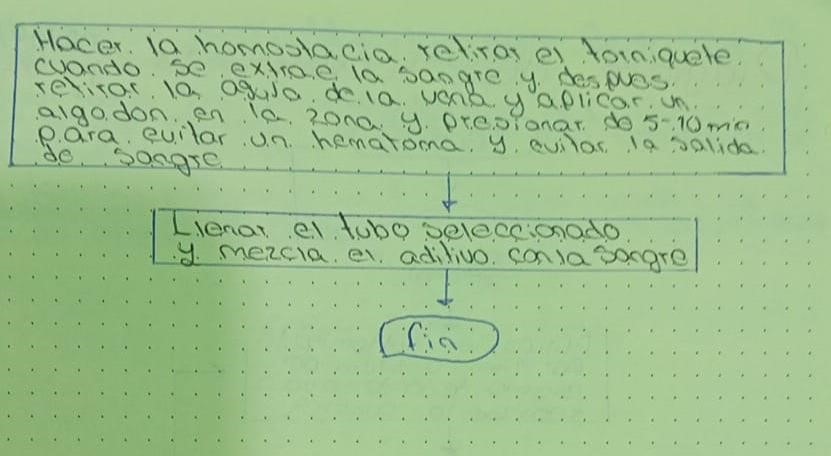 Hacer. la homostacia. retirar el torniquete.
cuando. se. extrae la sangre. y. despues.
retirar. la aguja. de. la. vena. y aplicar. un
algodon. en la. zona. y. presionar. de 5-10 min.
para. evitar un. hematoma. y. evitar. la salida.
de. sangre
Llenar. el tubo seleccionado
y. mezcla. el. aditivo. con la sangre
fin.